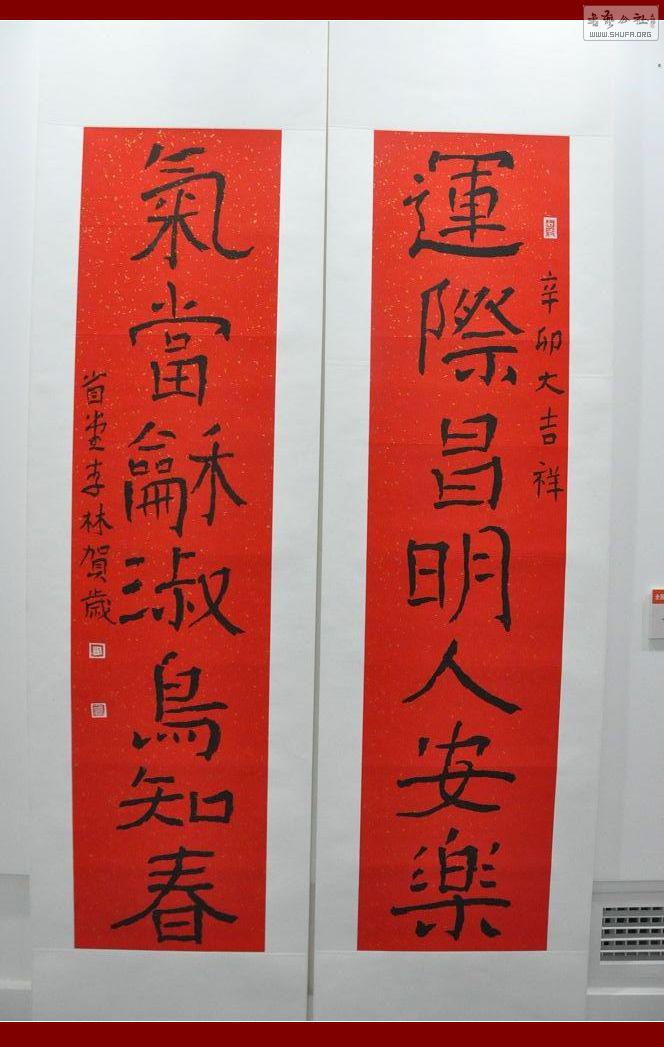 運際昌明人安樂
辛卯大吉祥
氣當龢淑鳥知春
首堂李林賀歲
WWW.SHUFA.ORG